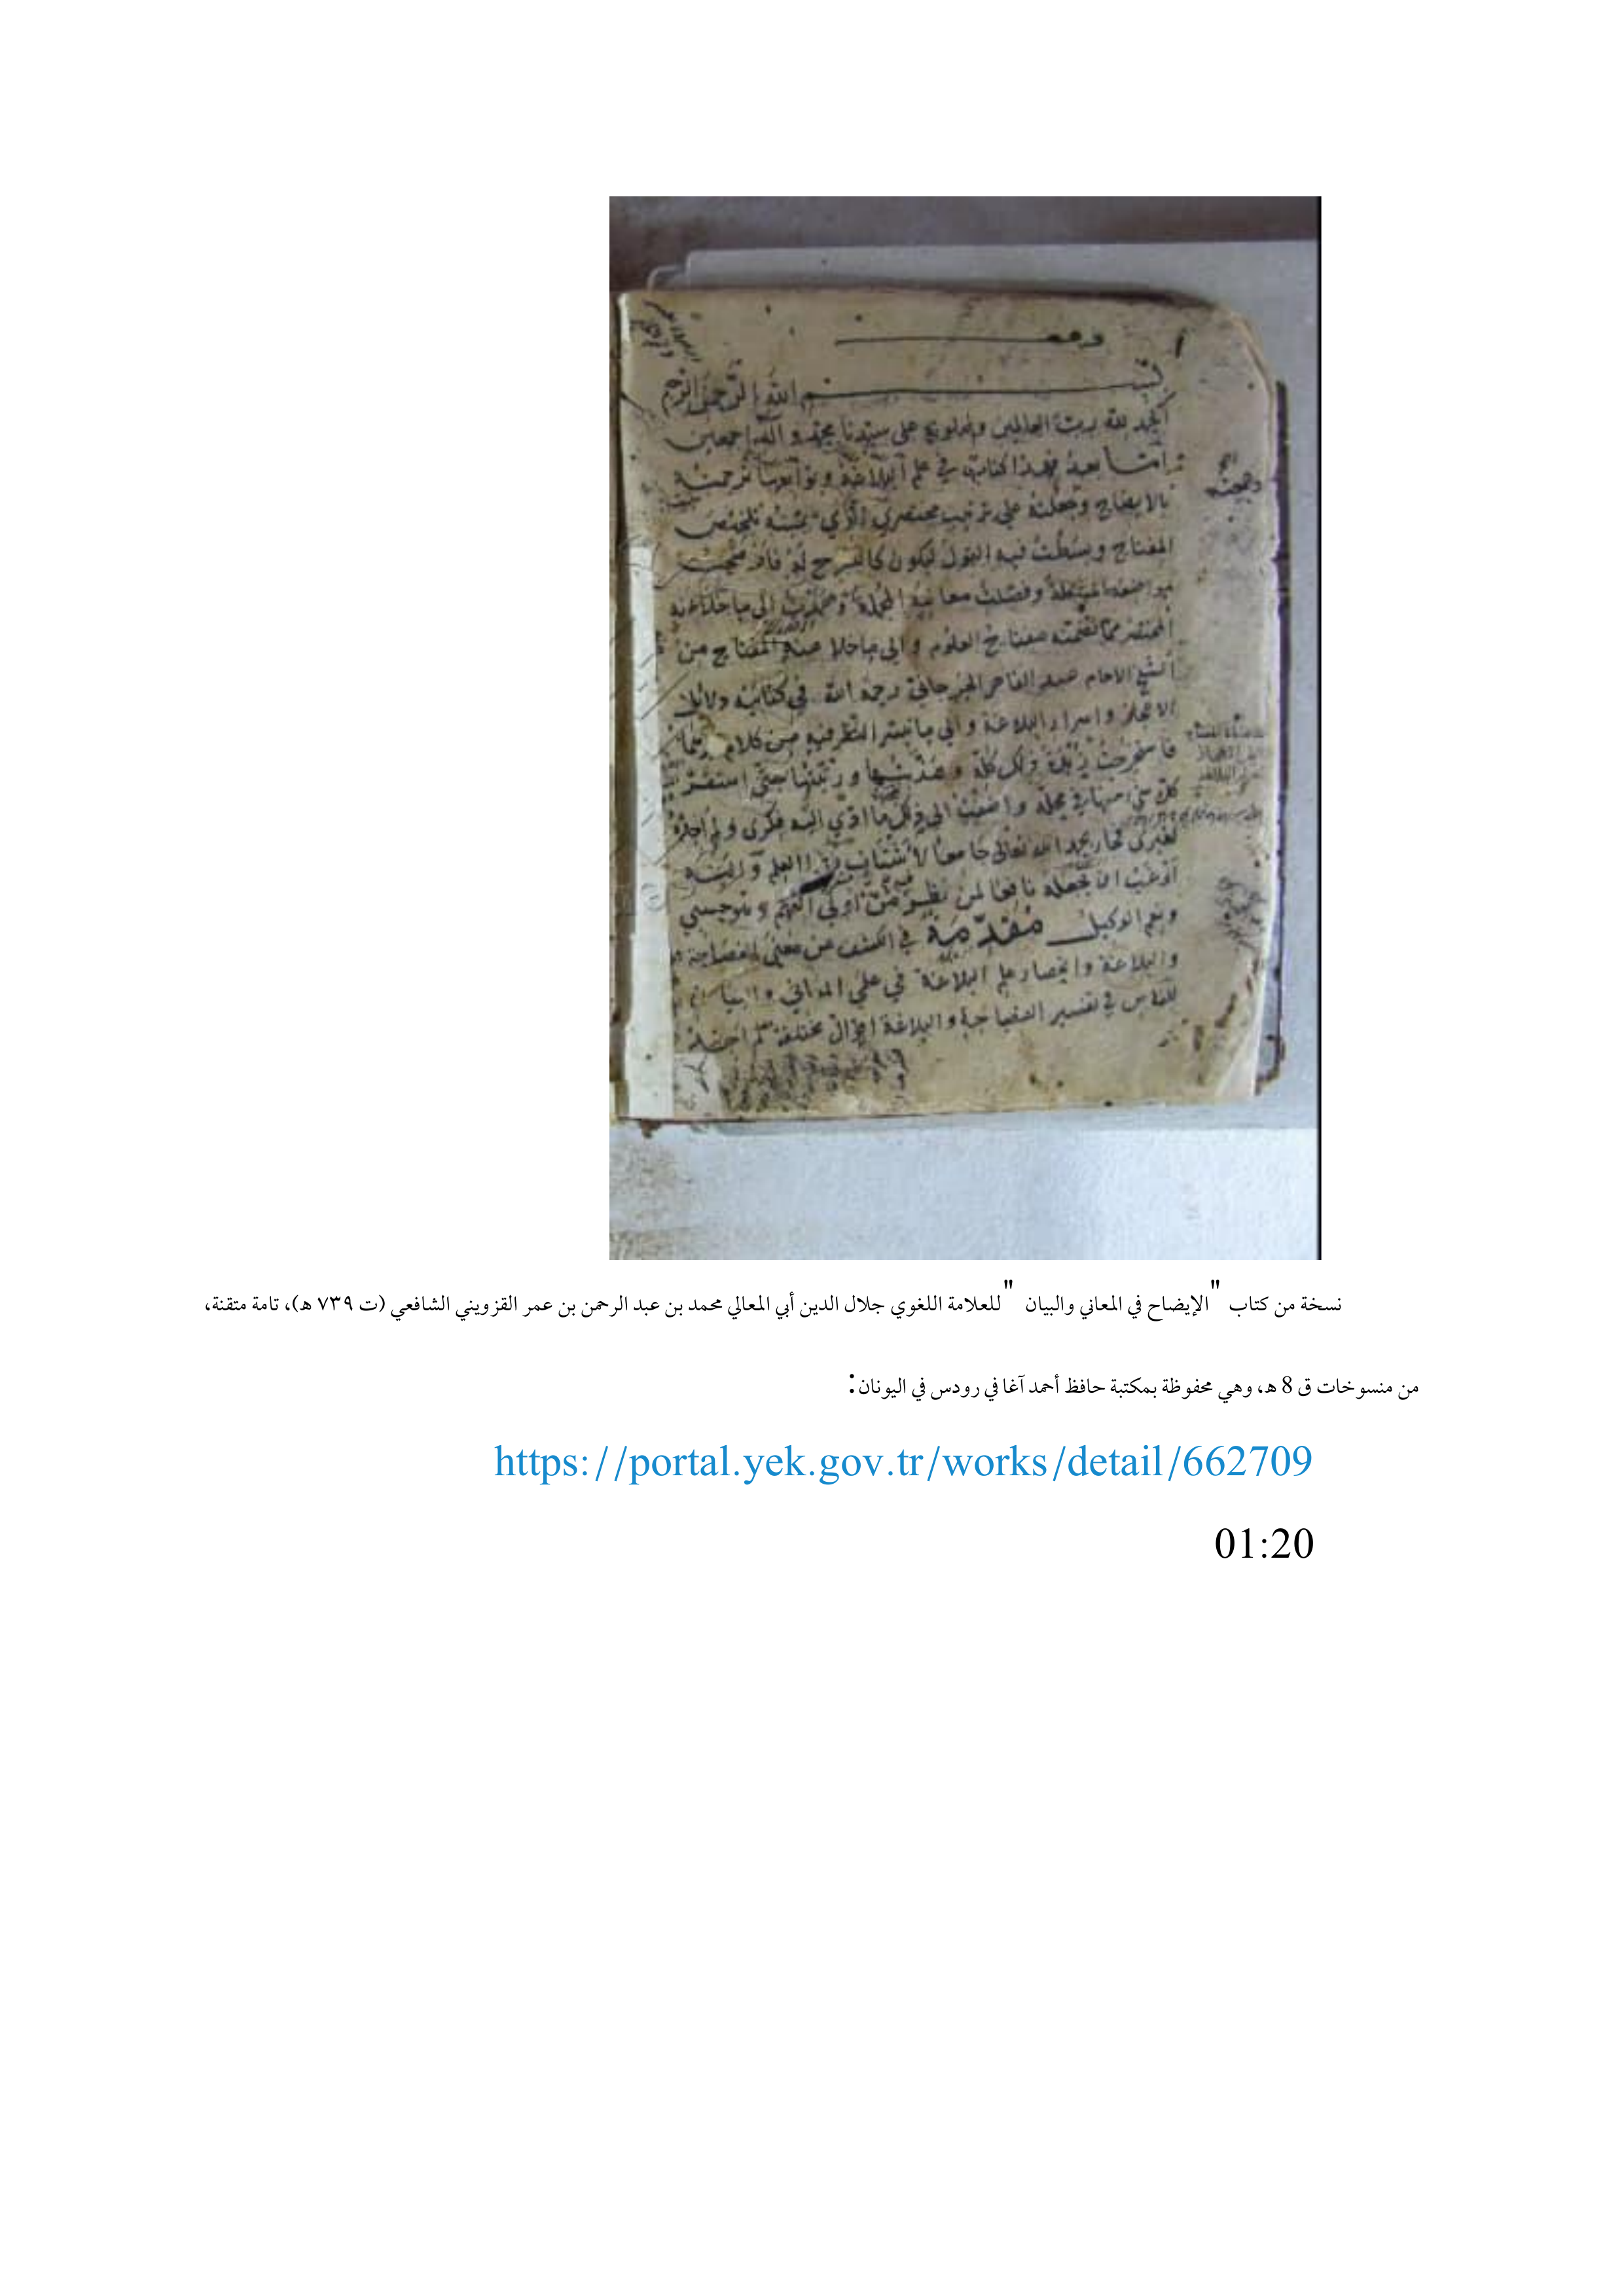 بسم الله الرحمن الرحيم
الحمد لله رب العالمين وصلوته على سيدنا محمد وآله اجمعين
اما بعد فهذا كتاب في علم البلاغة وتوابعها ترجمته
بالايضاح وجعلته على ترتيب مختصري الذي سميته تلخيص
المفتاح وبسطت فيه القول ليكون كالشرح له فاوضحت
مواضعه المشكلة وفصلت معانيه المجملة وعمدت الى ما خلا عنه
المختصر مما تضمنه مفتاح العلوم والى ما خلا عنه المفتاح من
الشيخ الامام عبد القاهر الجرجاني رحمه الله في كتابيه دلايل
الاعجاز واسرار البلاغة والى ما تيسر النظر فيه من كلام
فاستخرجت زبدة ذلك كله وهذبتها ورتبتها حتى استقر
كل شيء منها في محله واضفت الى ذلك ما ادى اليه فكري ولم اجده
لغيري فجاء بحمد الله تعالى جامعا لاشتات هذا العلم واليه
ارغب ان يجعله نافعا لمن نظر من اولي الفهم وهو حسبي
ونعم الوكيل مقدمة في الكشف عن معنى الفصاحة
والبلاغة وانحصار علم البلاغة في علمي المعاني والبيان
للناس في تفسير الفصاحة والبلاغة اقوال مختلفة لم اجد
نسخة من كتاب "الإيضاح في المعاني والبيان" للعلامة اللغوي جلال الدين أبي المعالي محمد بن عبد الرحمن بن عمر القزويني الشافعي (ت ٧٣٩ هـ)، تامة متقنة،
من منسوخات ق 8 هـ، وهي محفوظة بمكتبة حافظ أحمد آغا في رودس في اليونان:
https://portal.yek.gov.tr/works/detail/662709
01:20